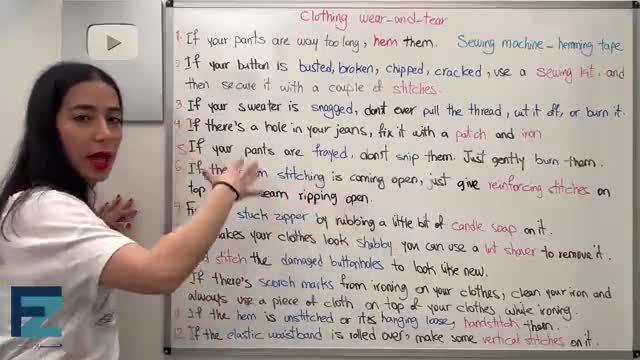 Clothing wear-and-tear
1. If your pants are way too long, hem them. Sewing machine - hemming tape
2. If your button is busted, broken, chipped, cracked, use a sewing kit. and
then secure it with a couple of stitches.
3 If your sweater is snagged, don't ever pull the thread, cut it off, or burn it.
4 If there's a hole in your jeans, fix it with a patch and iron
5. If your pants are frayed, don't snip them. Just gently burn them.
6. If the stitching is coming open, just give reinforcing stitches on
top seam ripping open.
7 stuck zipper by rubbing a little bit of candle soap on it.
makes your clothes look shabby you can use a lint shaver to remove it.
stitch the damaged buttonholes to look like new.
If there's scorch marks from ironing on your clothes, clean your iron and
always use a piece of cloth on top of your clothes while ironing.
11 If the hem is unstitched or its hanging loose, handstitch them.
12. If the elastic waistband is rolled over, make some vertical stitches on it.
EZ